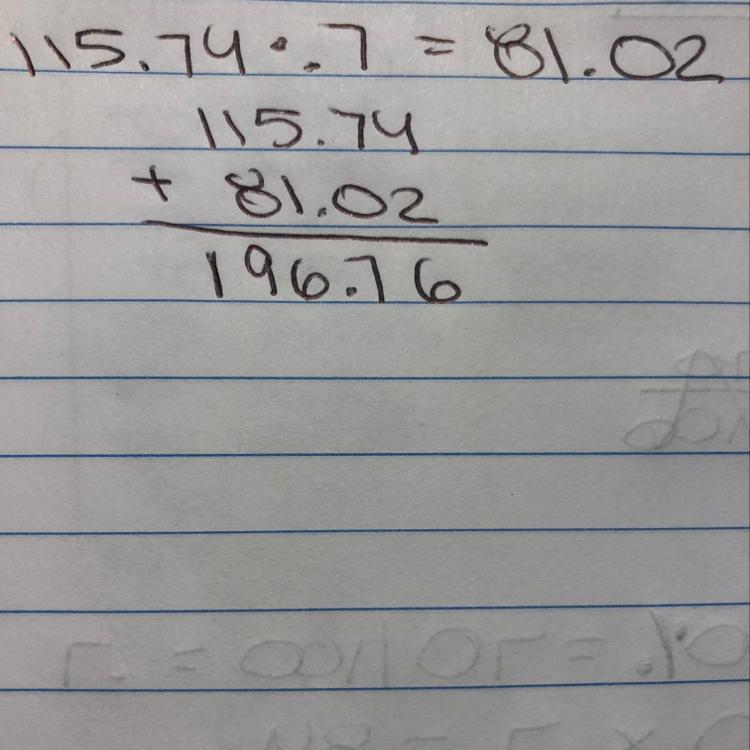 115.74 · .7 = 81.02
115.74
+ 81.02
196.76